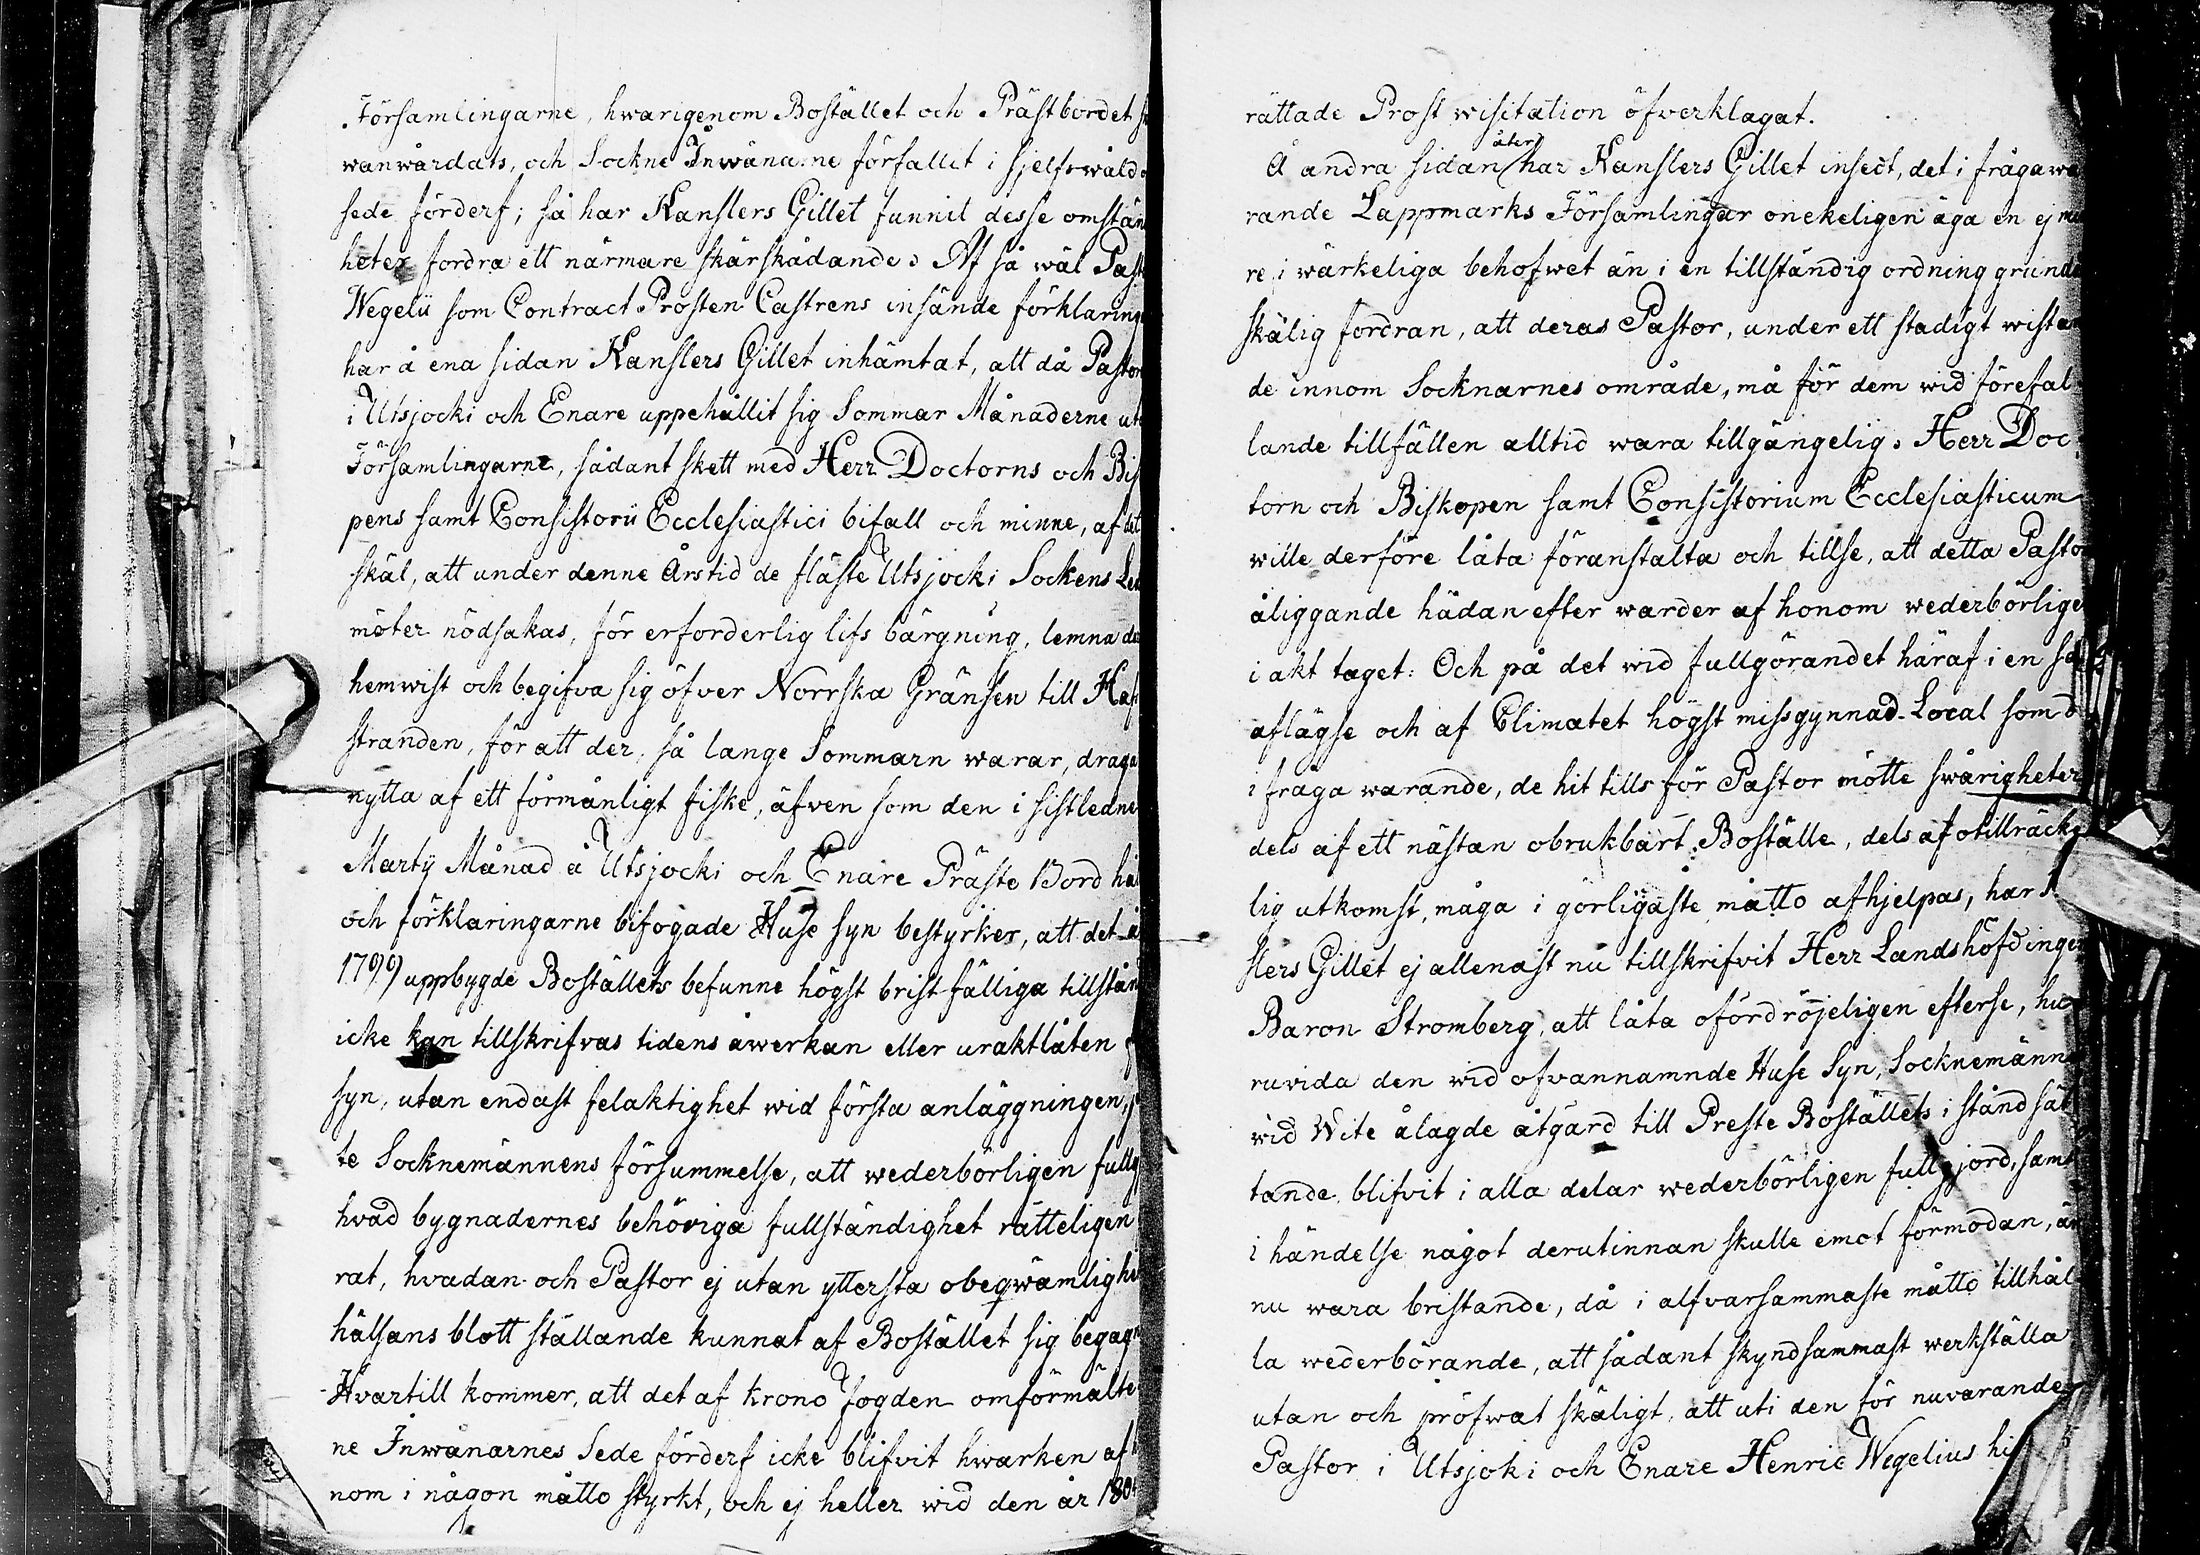 Församlingarne, hwarigenom Bostället och Prästbordet
wanwårdats, och Sockne Inwånarne förfallit i sjelfswåld o
sede förderf; så har Kanslers Gillet funnit desse omstän
heter fordra ett närmare skärskådande. Af så wäl Past
Wegelii som Contract Prosten Castrens insände förklaring
har å ena sidan Kanslers Gillet inhämtat, att då Pastor
i Utsjocki och Enare uppehållit sig Sommar Månaderne ut
Församlingarne, sådant skett med Herr Doctorns och Bis
pens samt Consistorii Ecclesiastici bifall och minne, af det
skäl, att under denne årstid de fläste Utsjocki Sockens Led
möter nödsakas, för erforderlig lifs bärgning, lemna de
hemwist och begifva sig öfver Norrska Gränsen till Haf
stranden, för att der, så lange Sommarn warar, draga
nytta af ett förmånligt fiske, äfven som den i sistledne
Martii Månad å Utsjocki och Enare Präste Bord hål
och förklaringarne bifogade Huse syn bestyrker, att det å
1799 uppbygde Boställets befunne högst brist fälliga tillstånd
icke kan tillskrifvas tidens åwerkan eller uraktlåten
syn, utan endast felaktighet wid första anläggningen, s
te Socknemännens försummelse, att wederbörligen fullg
hvad bygnadernes behöriga fullständighet rätteligen
rat, hvadan och Pastor ej utan yttersta obeqwämlighe
hälsans blott ställande kunnat af Bostället sig begagn
Hvartill kommer, att det af krono fogden omförmälte
ne Inwånarnes Sede förderf icke blifvit hwarken af
nom i någon måtto styrkt, och ej heller wid den år 1804
rättade Prost wisitation öfverklagat.
Å andra sidan åter har Kanslers Gillet insedt, det i fråga wa
rande Lappmarks Församlingar onekeligen äga en ej min
re i wärkeliga behofwet än i en tillständig ordning grunda
skälig fordran, att deras Pastor, under ett stadigt wistan
de innom Socknarnes område, må för dem wid förefal
lande tillfällen alltid wara tillgängelig. Herr Doc
torn och Biskopen samt Consistorium Ecclesiasticum
wille derföre låta föranstalta och tillse, att detta Pastor
åliggande hädan efter warder af honom wederbörligen
i akt taget: Och på det wid fullgörandet häraf i en så
aflägse och af Climatet högst missgynnad Local som d
i fråga warande, de hit tills för Pastor mötte swårigheter
dels af ett nästan obrukbart Boställe, dels af otillräck
lig utkomst, måga i görligaste måtto afhjelpas, har
slers Gillet ej allenast nu tillskrifvit Herr Landshöfdingen
Baron Stromberg, att låta ofördröjeligen efterse, hu
ruvida den wid ofvannamnde Huse Syn, Socknemännen
wid Wite ålagde åtgärd till Preste Boställets i stånd sät
tande blifvit i alla delar wederbörligen fullgjord, samt
i händelse något derutinnan skulle emot förmodan, än
nu wara bristande, då i alfvarsammaste måtto tillhål
la wederbörande, att sådant skyndsammast werkställa
utan och pröfwat skäligt, att uti den för nuvarande
Pastor i Utsjoki och Enare Henric Wegelius hi